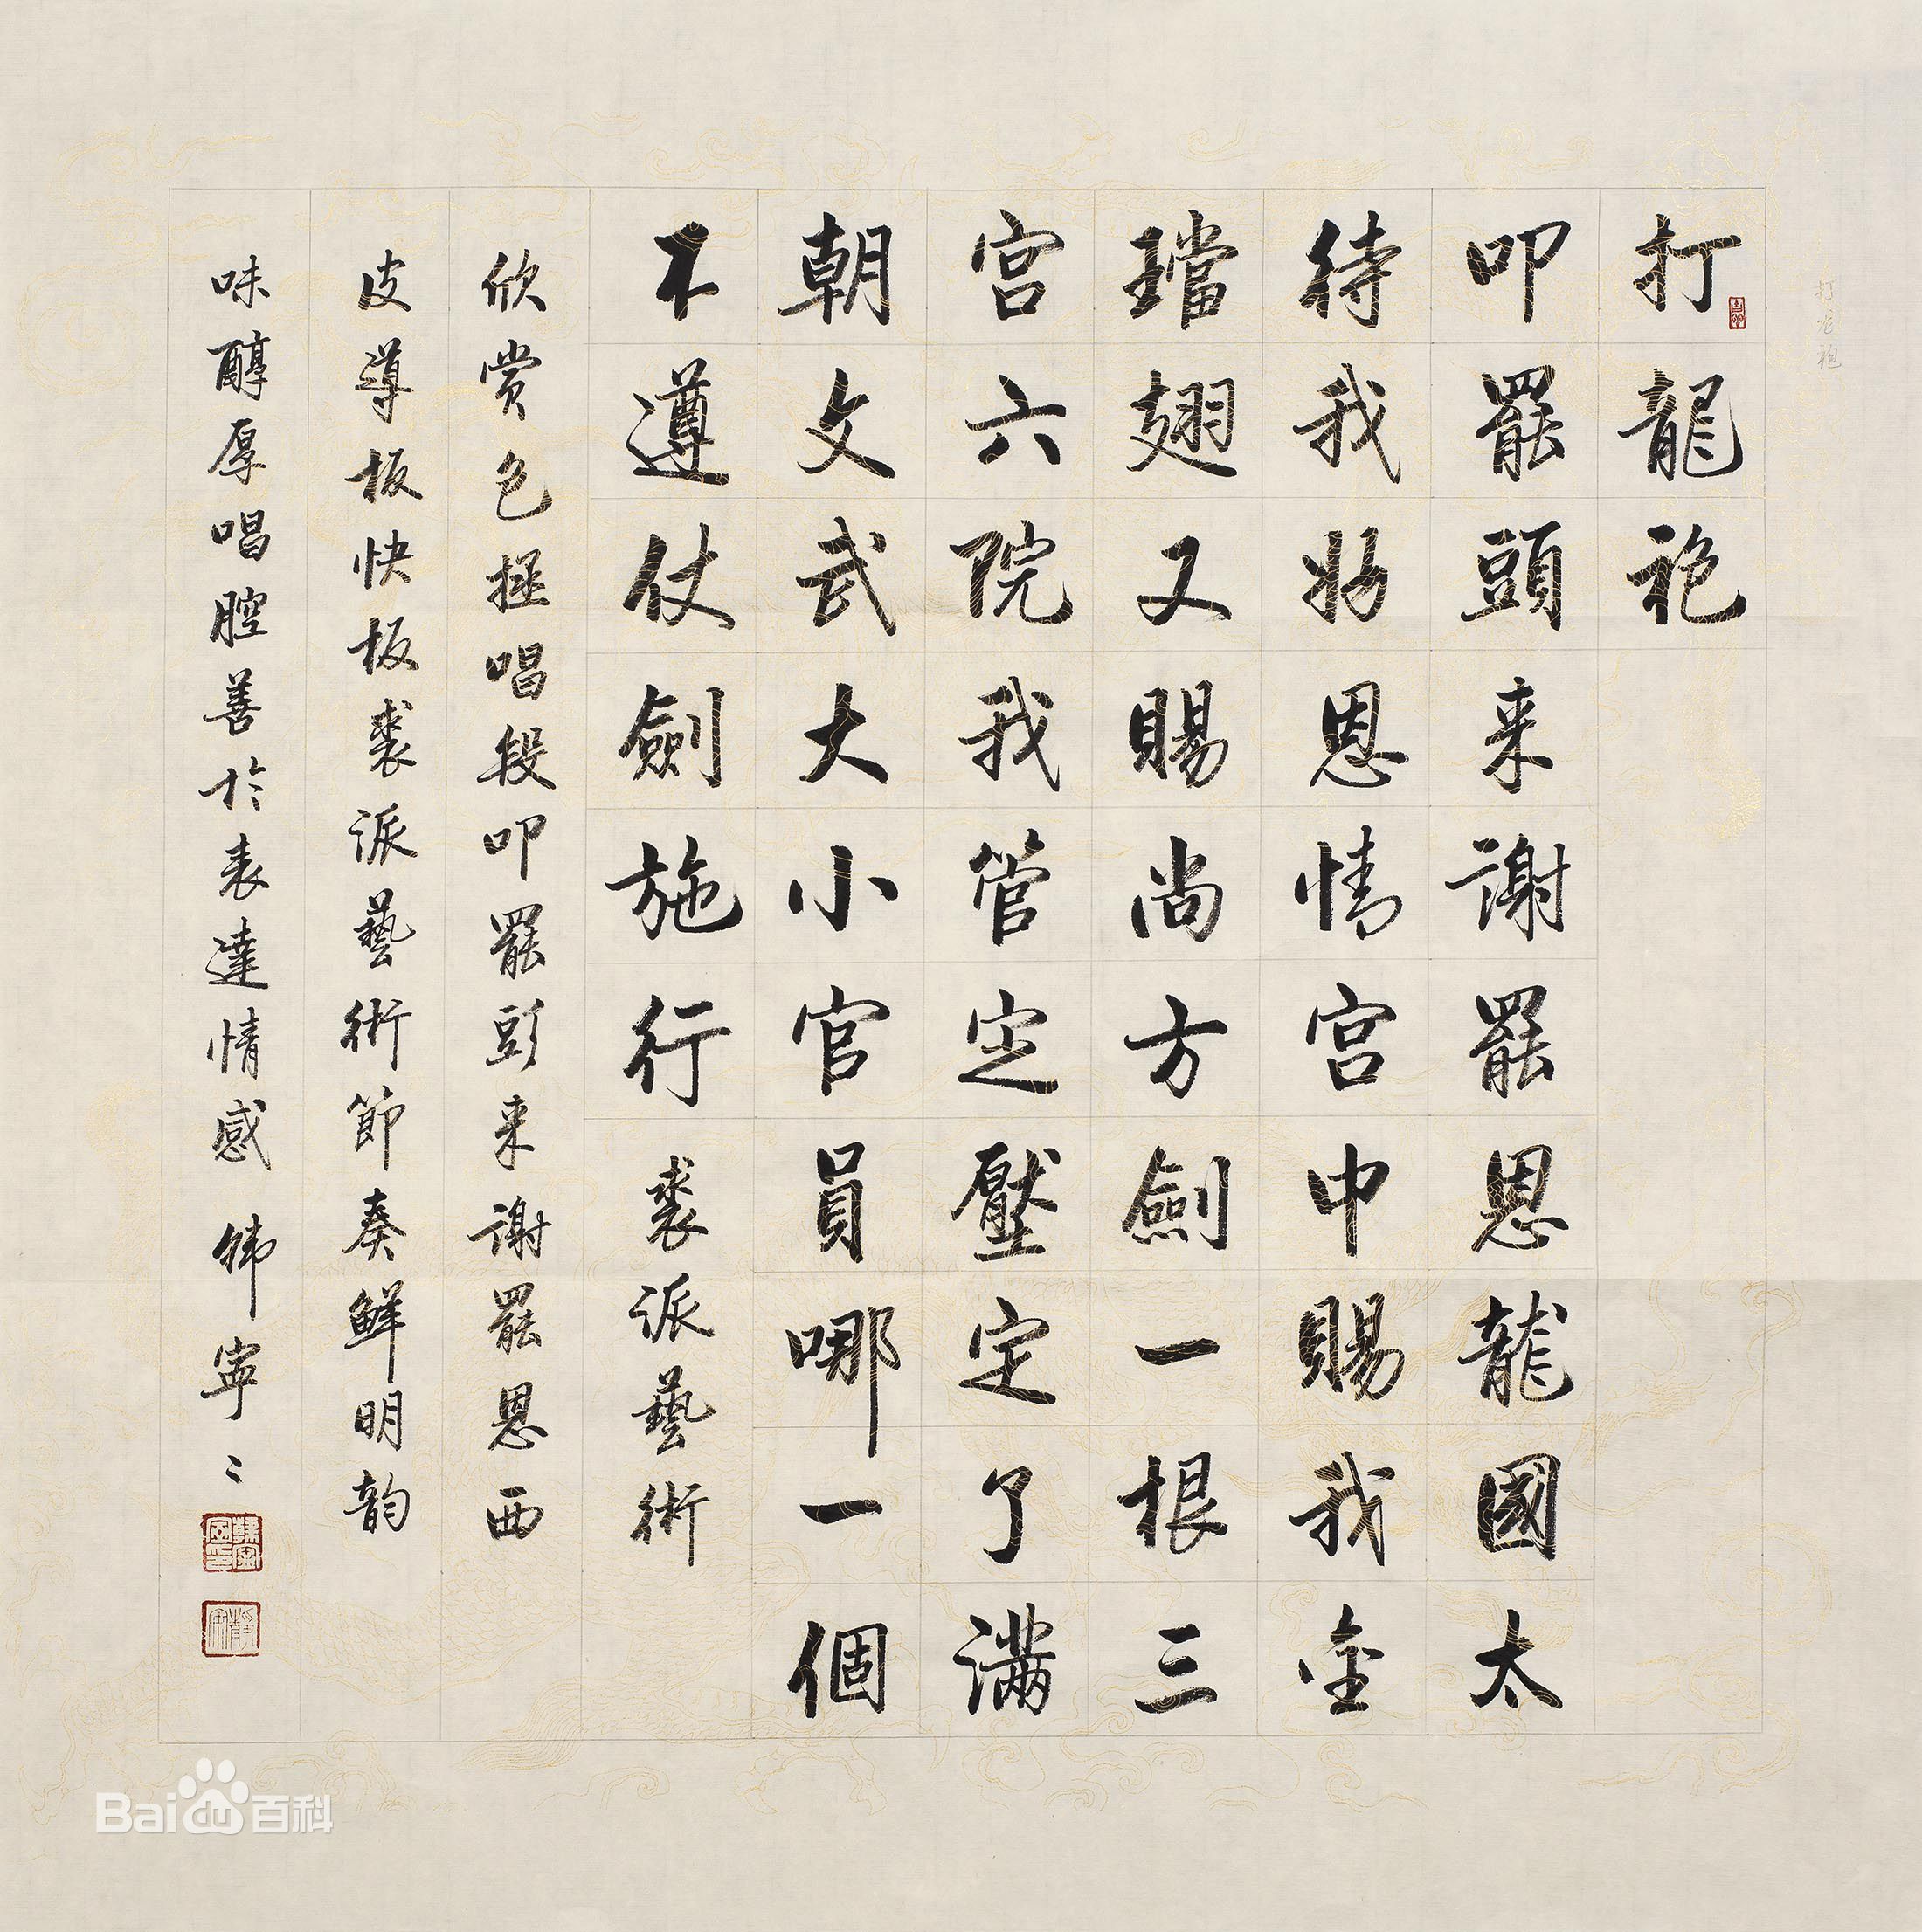 打龙袍
打龍袍
叩罷頭来謝罷恩龍國太
待我好恩情宫中賜我金
璫翅又賜尚方劍一根三
宫六院我管定壓定了滿
朝文武大小官員哪一個
不遵仗劍施行 裘派藝術
欣赏包拯唱段叩罷頭来謝罷恩西
皮導板快板裘派藝術節奏鮮明韵
味醇厚唱腔善於表達情感 韩寧〻
Baidu百科